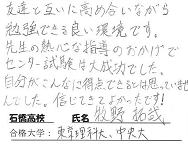 友達と互いに高め合いながら
勉強できる良い環境です。
先生の熱心な指導のおかげで
センター試験は大成功でした。
自分がこんなに得点できるとは思っていませ
んでした。信じてきてよかったです!
石橋高校 氏名 牧野 拓哉
合格大学: 東京理科大、中央大